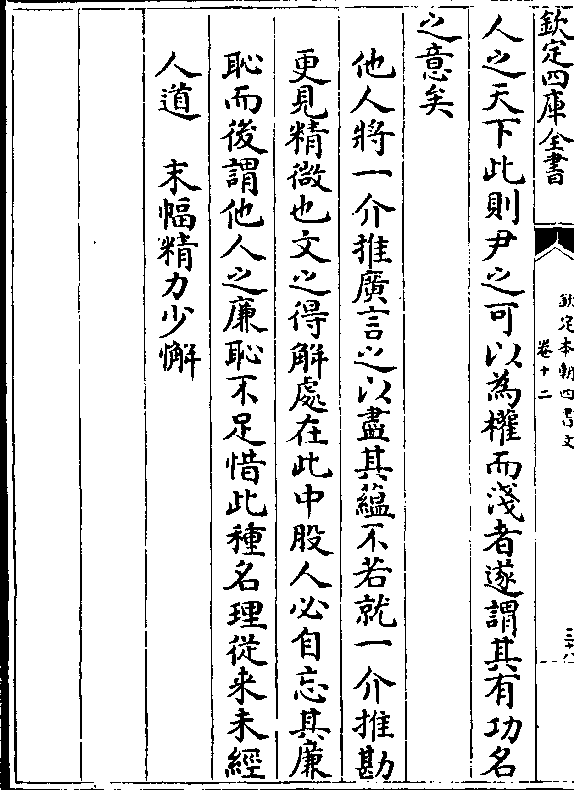 欽定四庫全書
欽定本朝四書文
卷十二
三十八
人之天下此則尹之可以為權而淺者遂謂其有功名
之意矣
他人將一介推廣言之以盡其蘊不若就一介推勘
更見精微也文之得解處在此中股人必自忘其廉
恥而後謂他人之廉恥不足惜此種名理從来未經
人道　末幅精力少懈